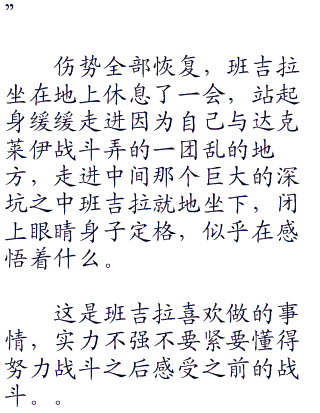 ”
伤势全部恢复，班吉拉
坐在地上休息了一会，站起
身缓缓走进因为自己与达克
莱伊战斗弄的一团乱的地
方，走进中间那个巨大的深
坑之中班吉拉就地坐下，闭
上眼睛身子定格，似乎在感
悟着什么。
这是班吉拉喜欢做的事
情，实力不强不要紧要懂得
努力战斗之后感受之前的战
斗。。